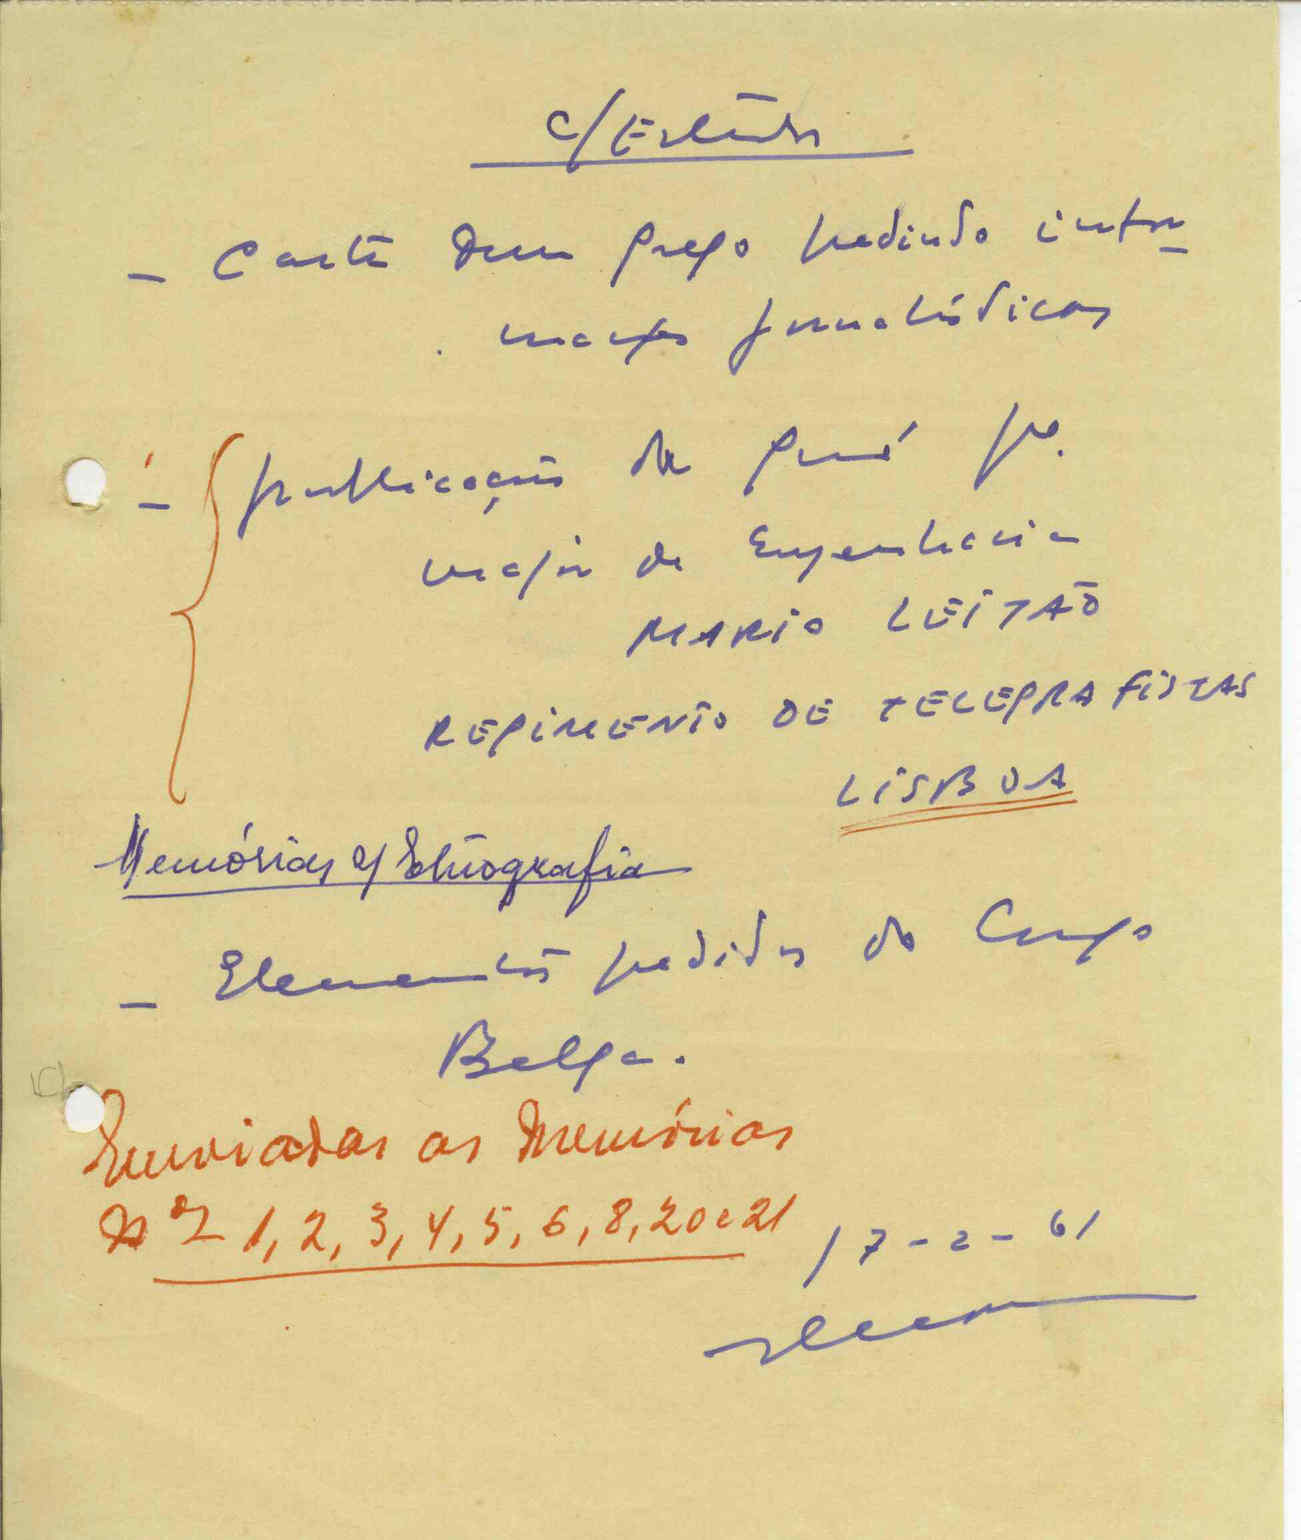 C/ Estudos
- Carta dum grego pedindo infor-
mações
- publicação da Guiné pª.
major de Engenharia
MARIO LEITÃO
REGIMENTO DE TELEGRAFISTAS
LISBOA
Memórias c/ Etnografia
- Elementos pedidos do Congo
Belga.
Enviadas as Memórias
Nºs 1, 2, 3, 4, 5, 6, 8, 20 e 21
17-2-61